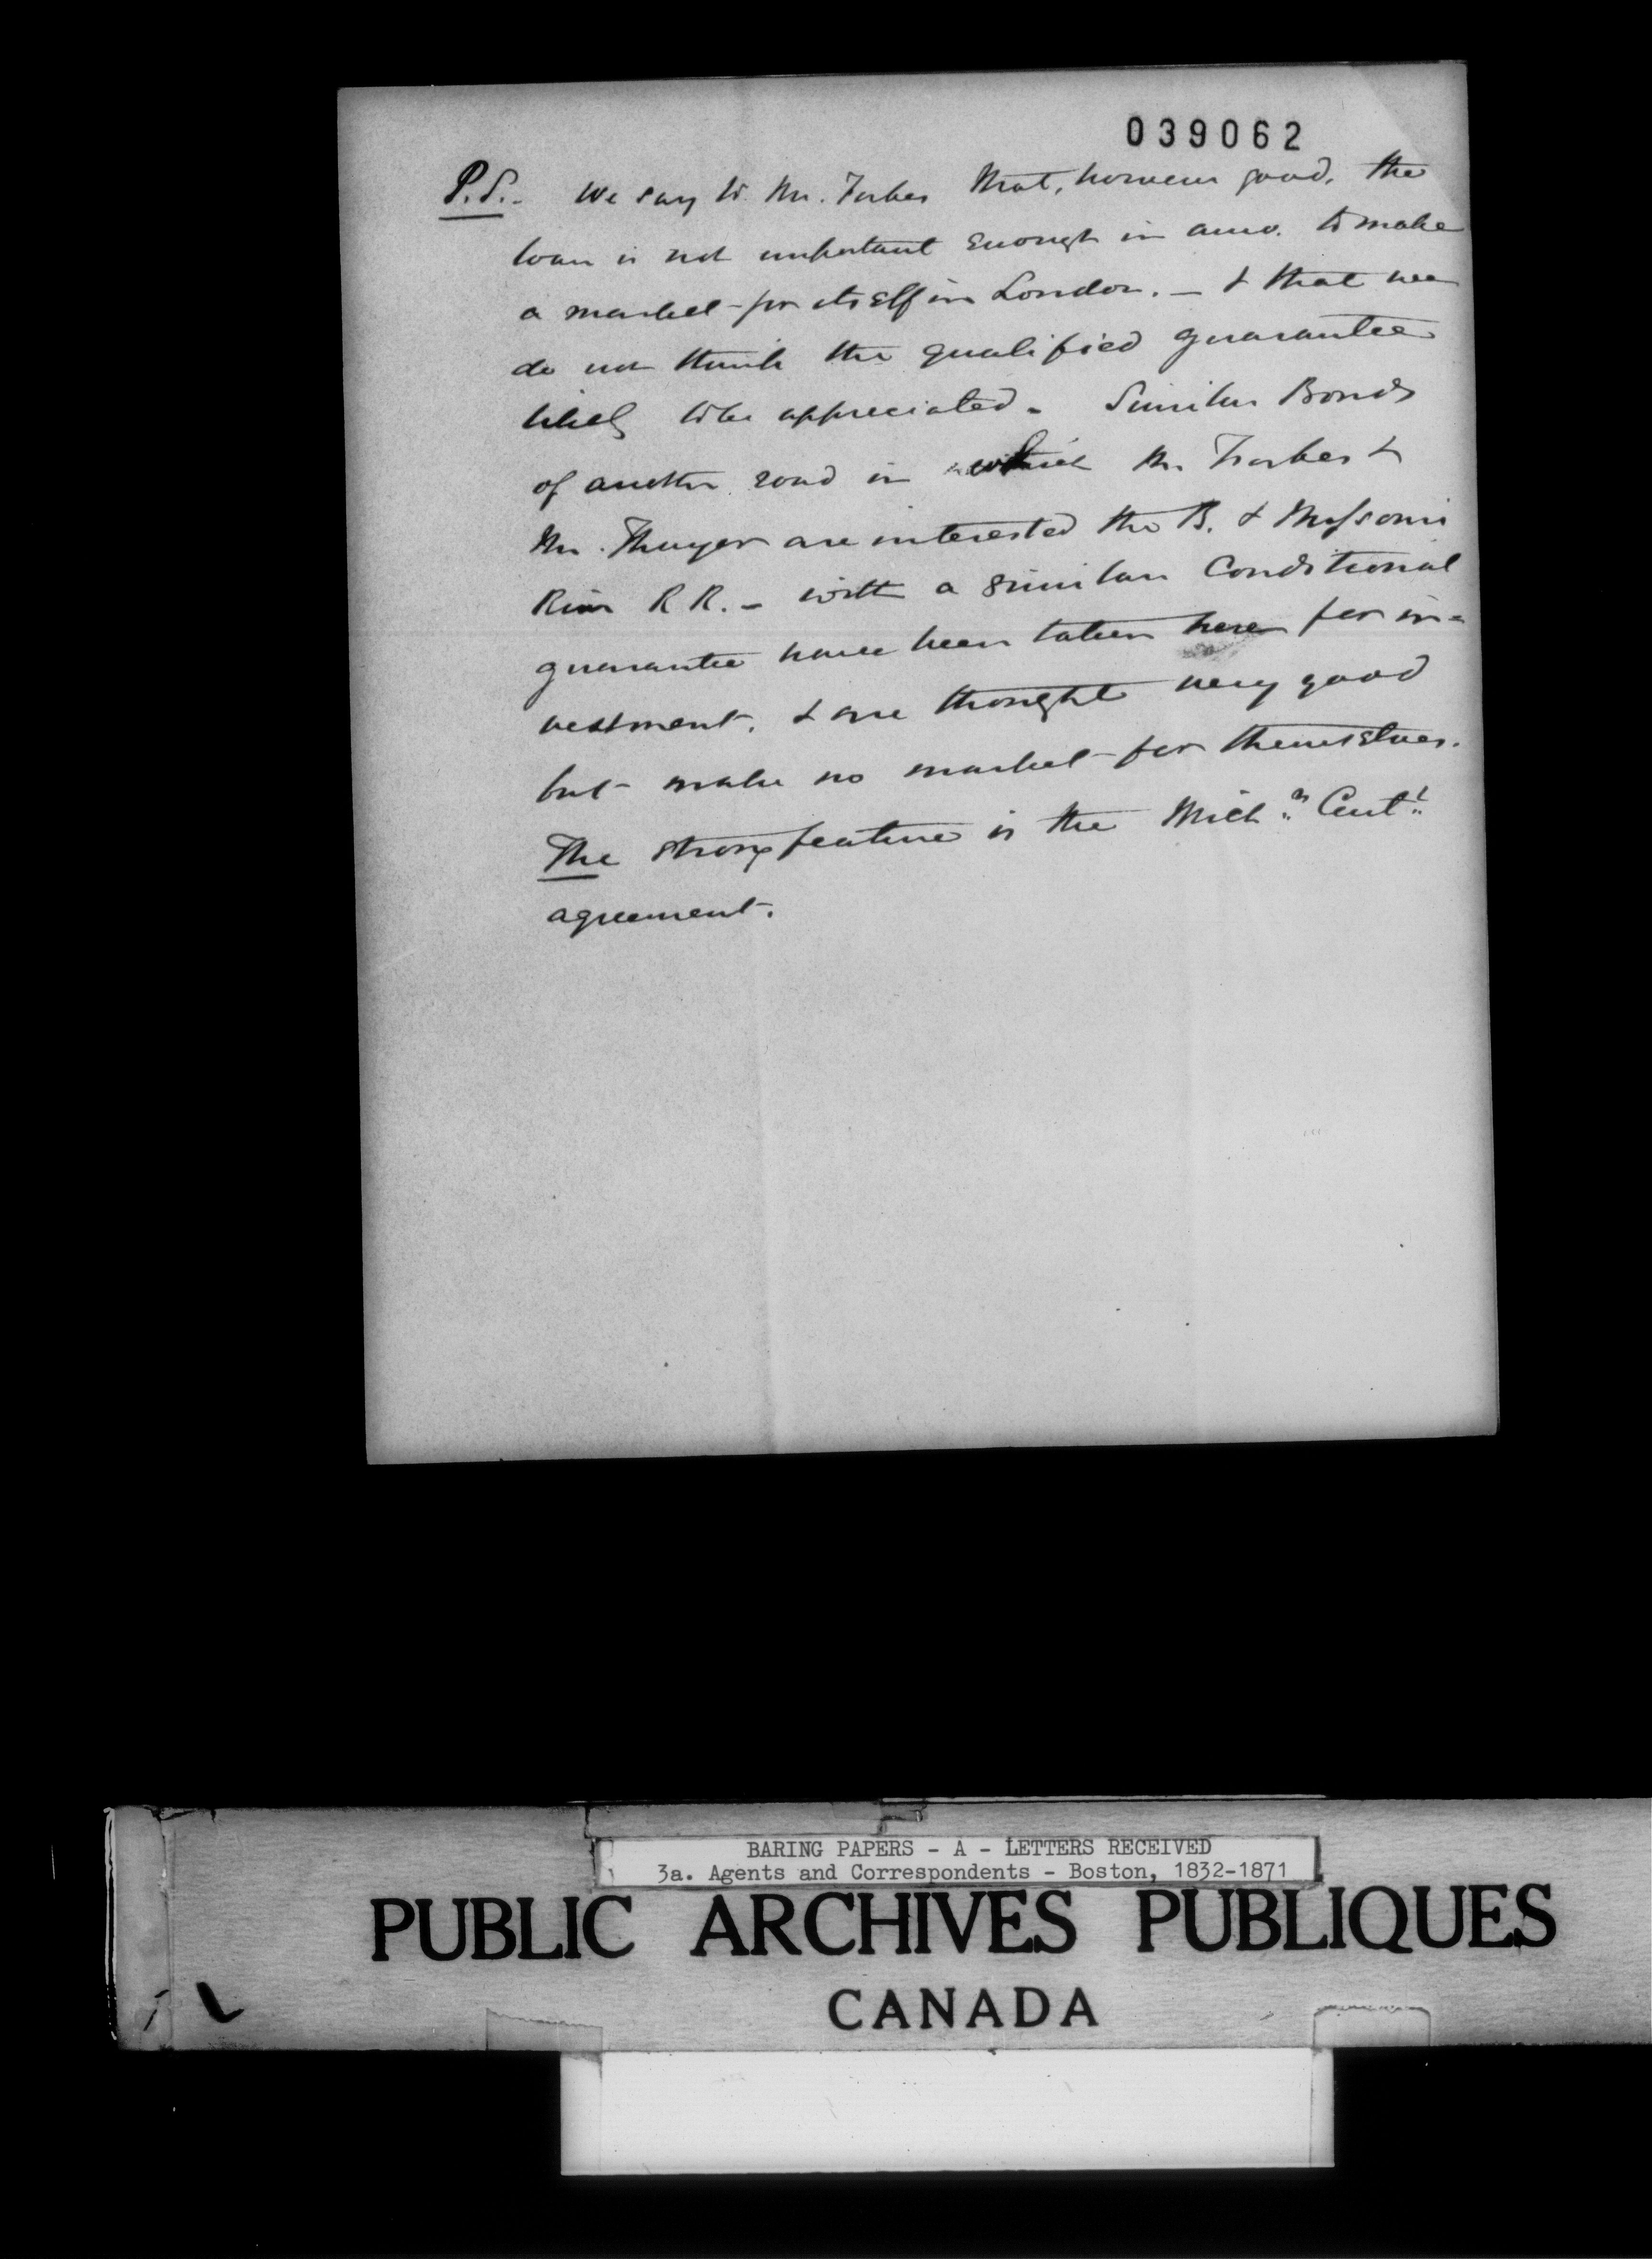 039062
P.S. - We say to Mr. Forbes that, however good, the
loan is not important enough in amo. to make
a market for itself in London. - & that we
do not think the qualified guarantee
likely to be appreciated - Similar Bonds
of another road in which Mr. Forbes &
Mr. Thayer are interested the B. & Missouri
River R R. - with a similar Conditional
guarantee have been taken here for in=
vestment. & are thought very good
but make no market for themselves.
The strong feature is the Mich.n Cent.l
agreement.
BARING PAPERS - A - LETTERS RECEIVED
3a. Agents and Correspondents - Boston, 1832-1871
PUBLIC ARCHIVES PUBLIQUES
CANADA